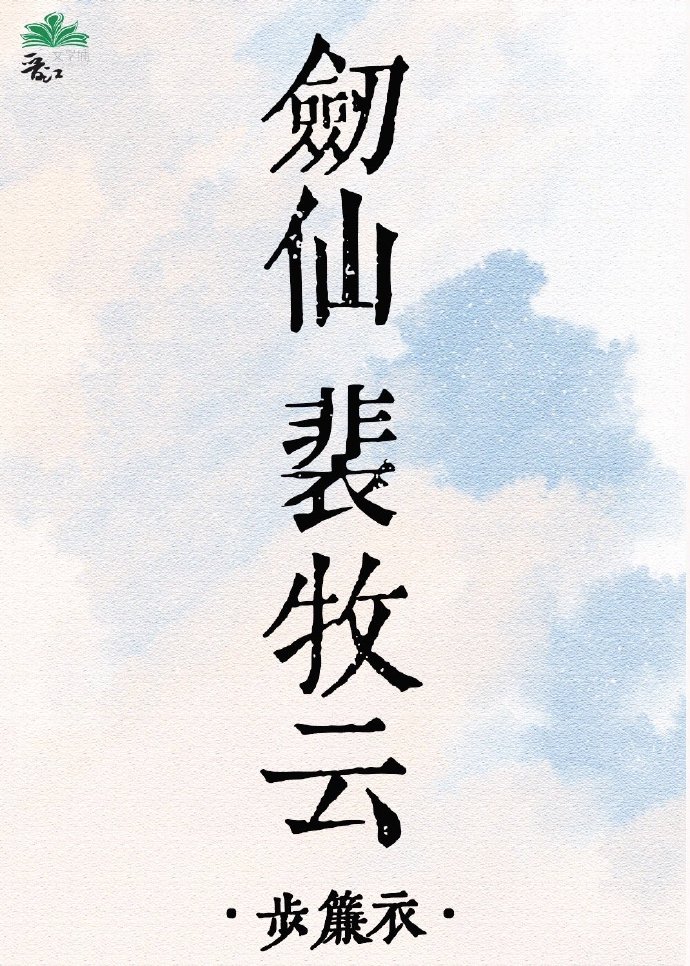 晋江
文学城
劒仙
裴牧云
·步簾衣·